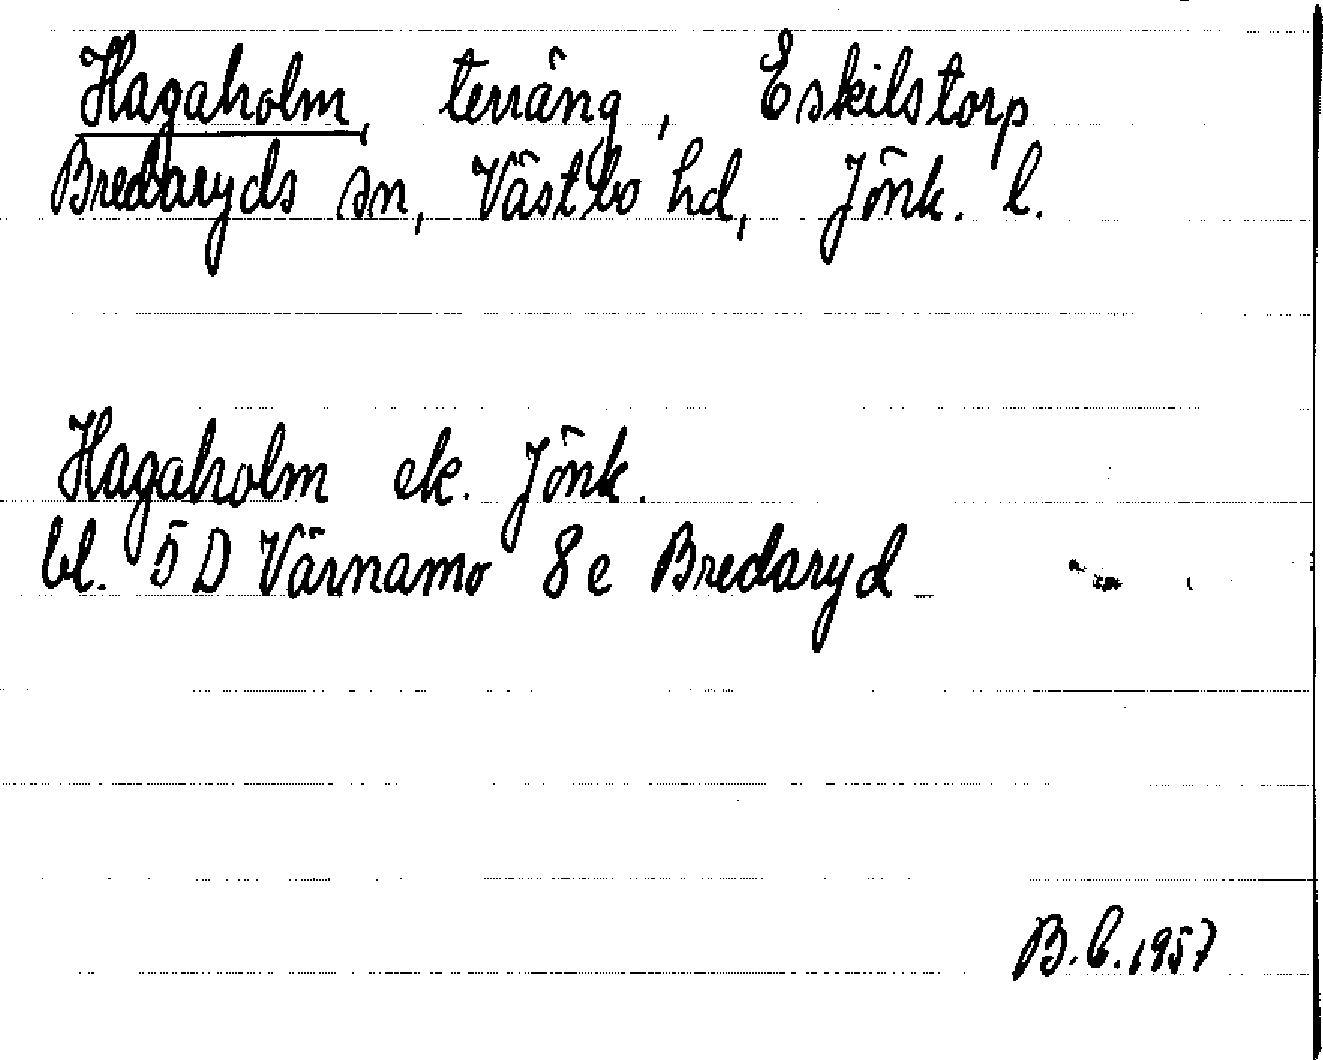 Hagaholm, terräng, Eskilstorp
Bredaryds sn, Västbo hd, Jönk. l.
Hagaholm ek. Jönk.
bl. 5 D Värnamo 8 e Bredaryd
B.b. 1957